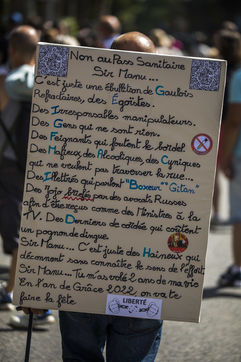 Non au Pass Sanitaire
Sir Manu...
C'est juste une ébullition de Gaulois
Réfractaires, des Égoïstes.
Des Irresponsables manipulateurs.
Des Gens qui ne sont rien.
Des Feignants qui foutent le bordel
Des Mafieux des Alcooliques des Cyniques
qui ne veulent pas traverser la rue...
Des Illettrés qui parlent "Boxeur" "Gitan"
Des Fojo briefés par des avocats Russes
afin d'être reçus comme des Ministres à la
TV. Des Derniers de cordée qui coûtent
un pognon de dingue.
Sir Manu... C'est juste des Haineux qui
déconnent sans connaître le sens de l'effort
Sir Manu... Tu m'as volé 2 ans de ma vie
En l'an de Grâce 2022, on va te
faire la fête
LIBERTÉ